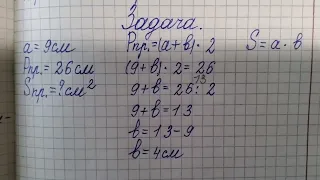 Задача.
a = 9см
Pпр. = 26см
Sпр. = ? см²
Pпр. = (a + в) · 2
(9 + в) · 2 = 26
9 + в = 26 : 2
13
9 + в = 13
в = 13 - 9
в = 4см
S = a · в